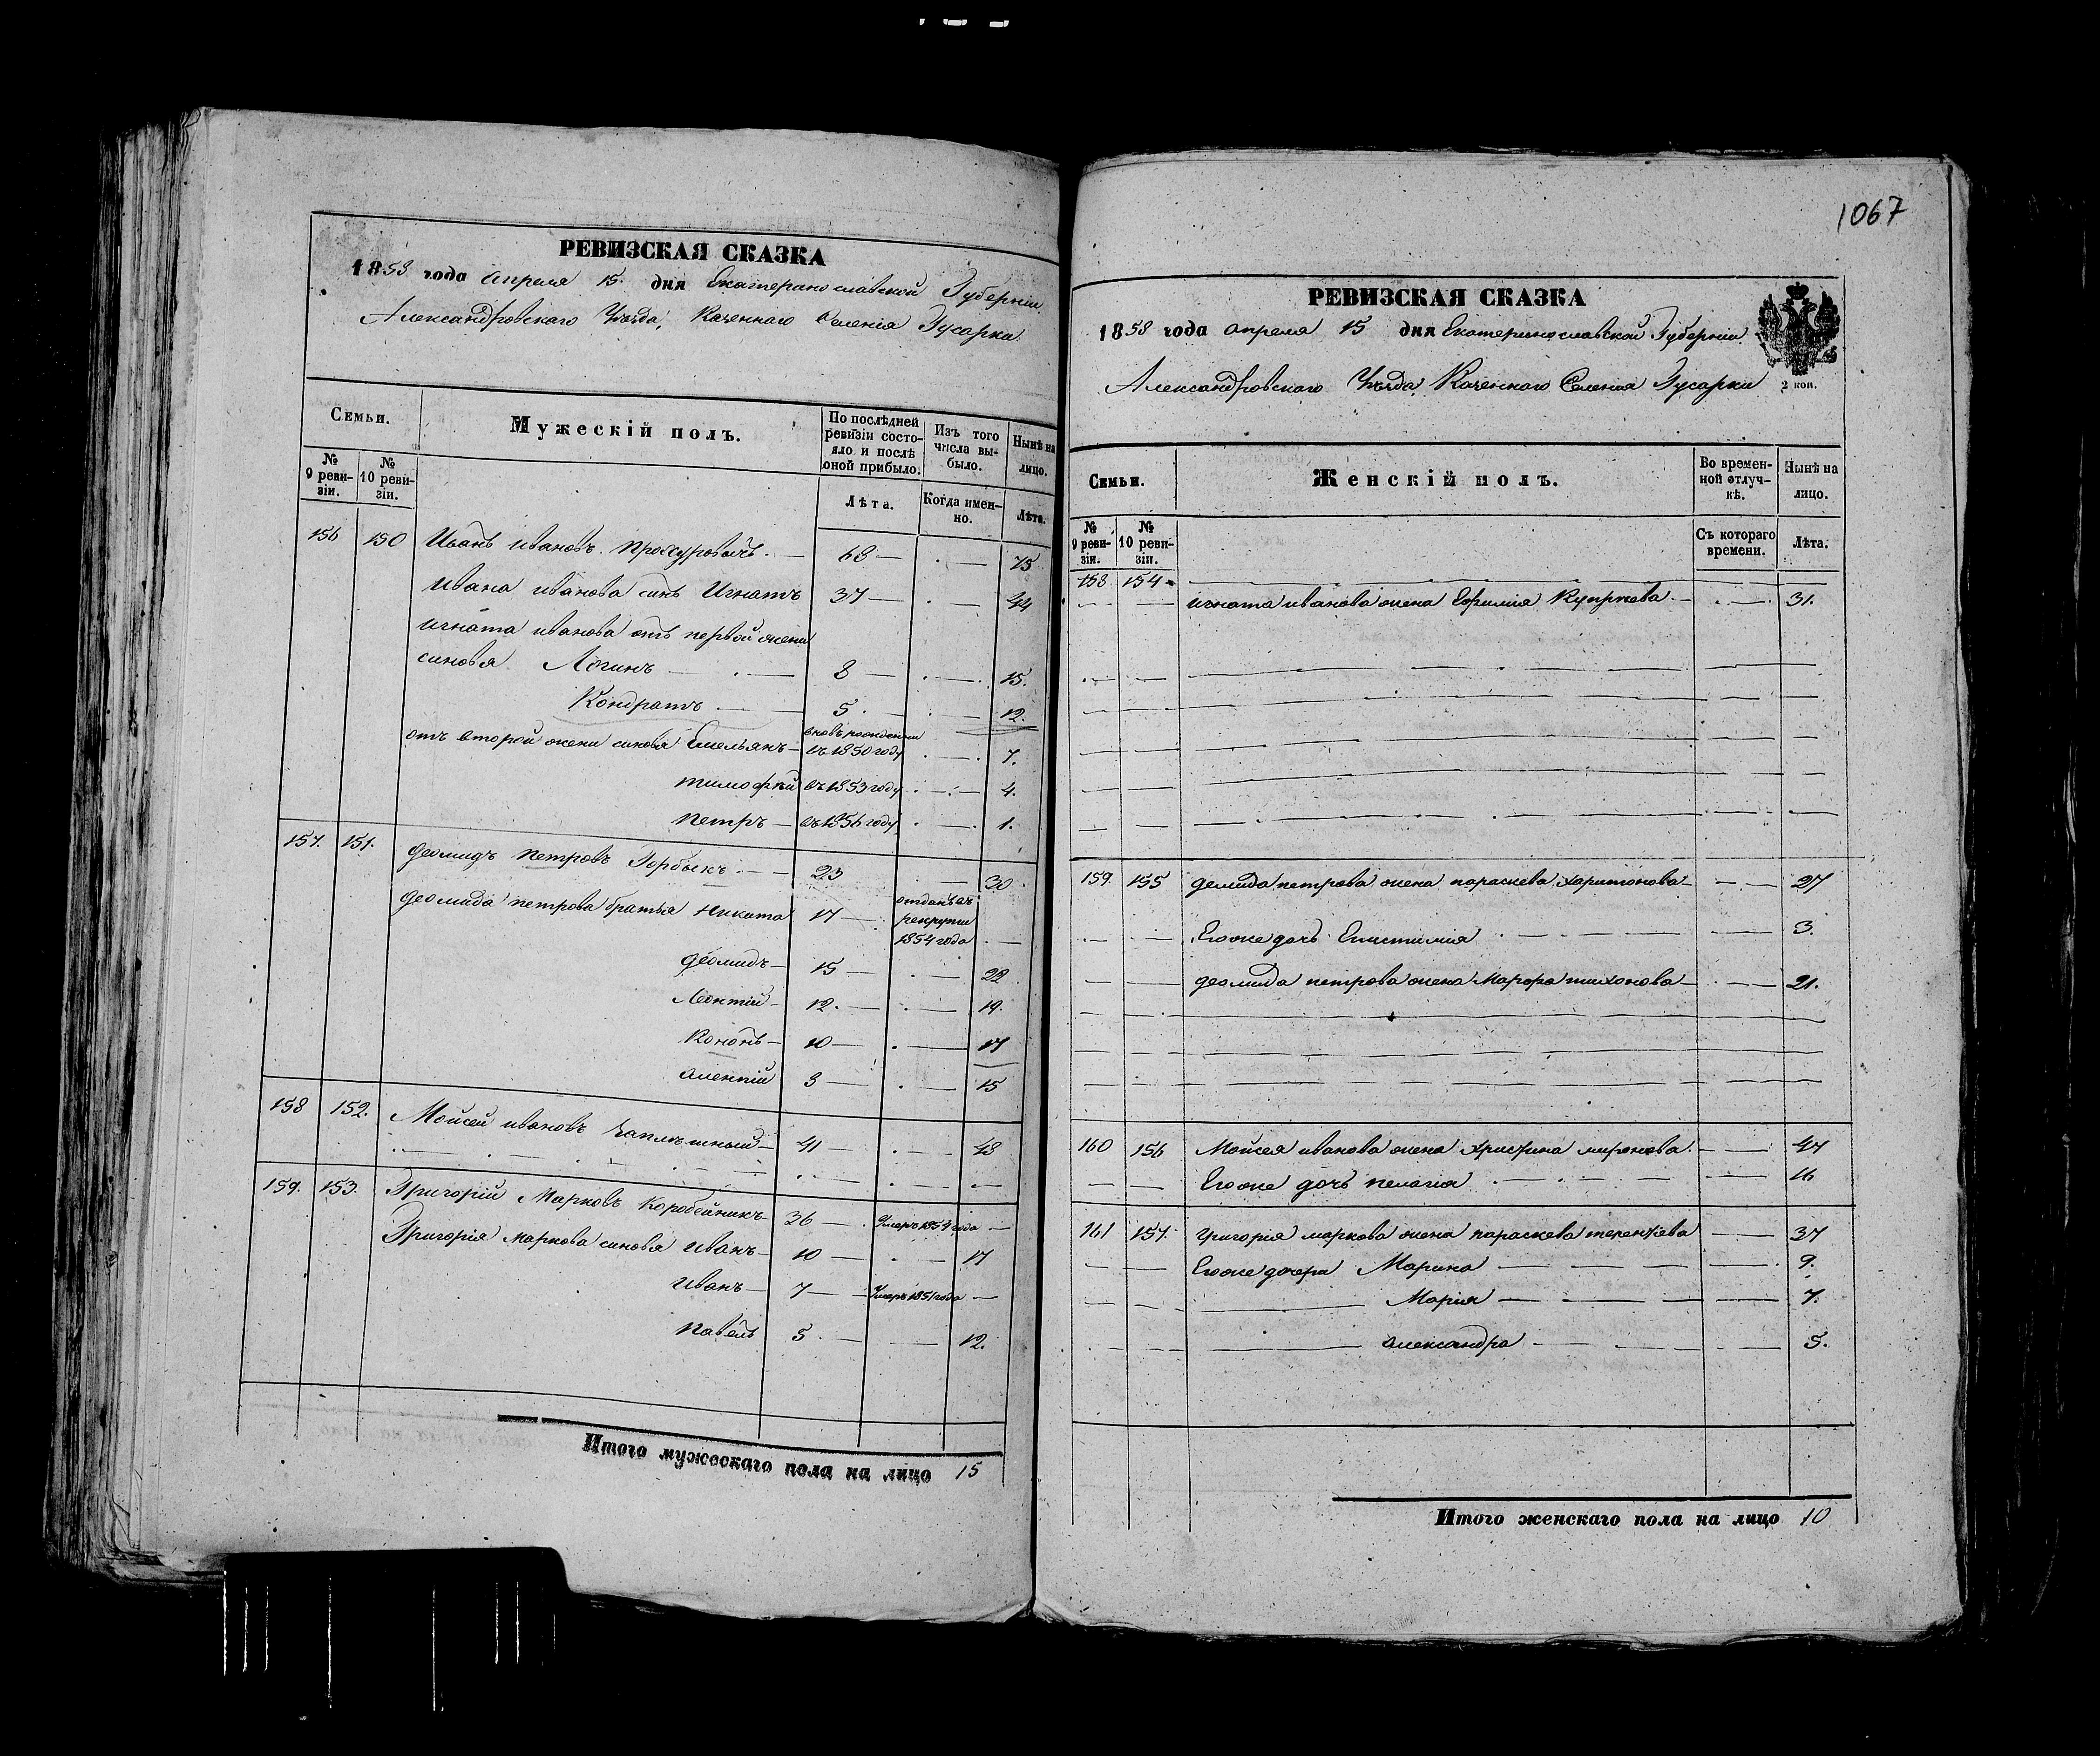 1067
РЕВИЗСКАЯ СКАЗКА
1858 года апреля 15 дня Екатеринославской Губерніи
Александровскаго Уѣзда, Казеннаго Селенія Гусарка.
Семьи.
Мужескій полъ.
По послѣдней ревизіи состояло и послѣ оной прибыло.
Изъ того числа выбыло.
Нынѣ на лицо.
№ 9 ревизіи.
№ 10 ревизіи.
Лѣта.
Когда именно.
Лѣта.
156 150 Иванъ Ивановъ 68 — . — 75
Ивана Иванова синъ Игнатъ 37 — . — 44
Игната Иванова отъ первой жени
синовя Логинъ — . — 8 — . — . 15.
Кондратъ . — 5 . — . — 12.
отъ второй жени синовя Емельянъ — вновь рожденни въ 1850 году . — . 7.
тимофѣй въ 1853 году . — . — 4.
Петръ — въ 1856 году . — . 1.
157. 151. Деомидъ Петровъ Горбыкъ . — 23 . — 30.
Деомида Петрова братья Никита 17 — . отданъ въ рекрути 1854 года . —
Деомидъ — 15 — . — 22
Леонтій — 12. — . — 19.
Кононъ — 10 — . — 17
Алексій 3 — . — 15
158 152. Мойсей Ивановъ 41 — . — 48
159. 153. Григорій Марковъ Коробейникъ — 36 — . Умеръ 1854 года —
Григорія Маркова синовя Иванъ — 10 — . — 17
Иванъ — 7 — Умеръ 1851 года —
Павелъ 5 . — — 12.
Итого мужескаго пола на лицо 15
РЕВИЗСКАЯ СКАЗКА
1858 года апреля 15 дня Екатеринославской Губерніи.
Александровскаго Уѣзда, Казеннаго Селенія Гусарки
2 коп.
Семьи.
Женскій полъ.
Во временной отлучкѣ.
Нынѣ на лицо.
№ 9 ревизіи.
№ 10 ревизіи.
Съ котораго времени.
Лѣта.
158 154
Игната Иванова жена Ефимія — . — . 31.
159. 155 Демида Петрова жена Параскева Харитонова — — . — 27
Егоже дочь Епистимія . — . — — — 3.
Деомида Петрова жена Мафра Тихонова — . — — 21.
160 156 Мойсея Иванова жена Христина Миронова. — — 47
Егоже дочь Пелагія . — . — . — — 16
161 157. Григорія Маркова жена Параскева Терентіева — — 37
Егоже дочери Марина — — — — — . 9.
Марія — — — — 7.
Александра . — . — . — 5.
Итого женскаго пола на лицо 10